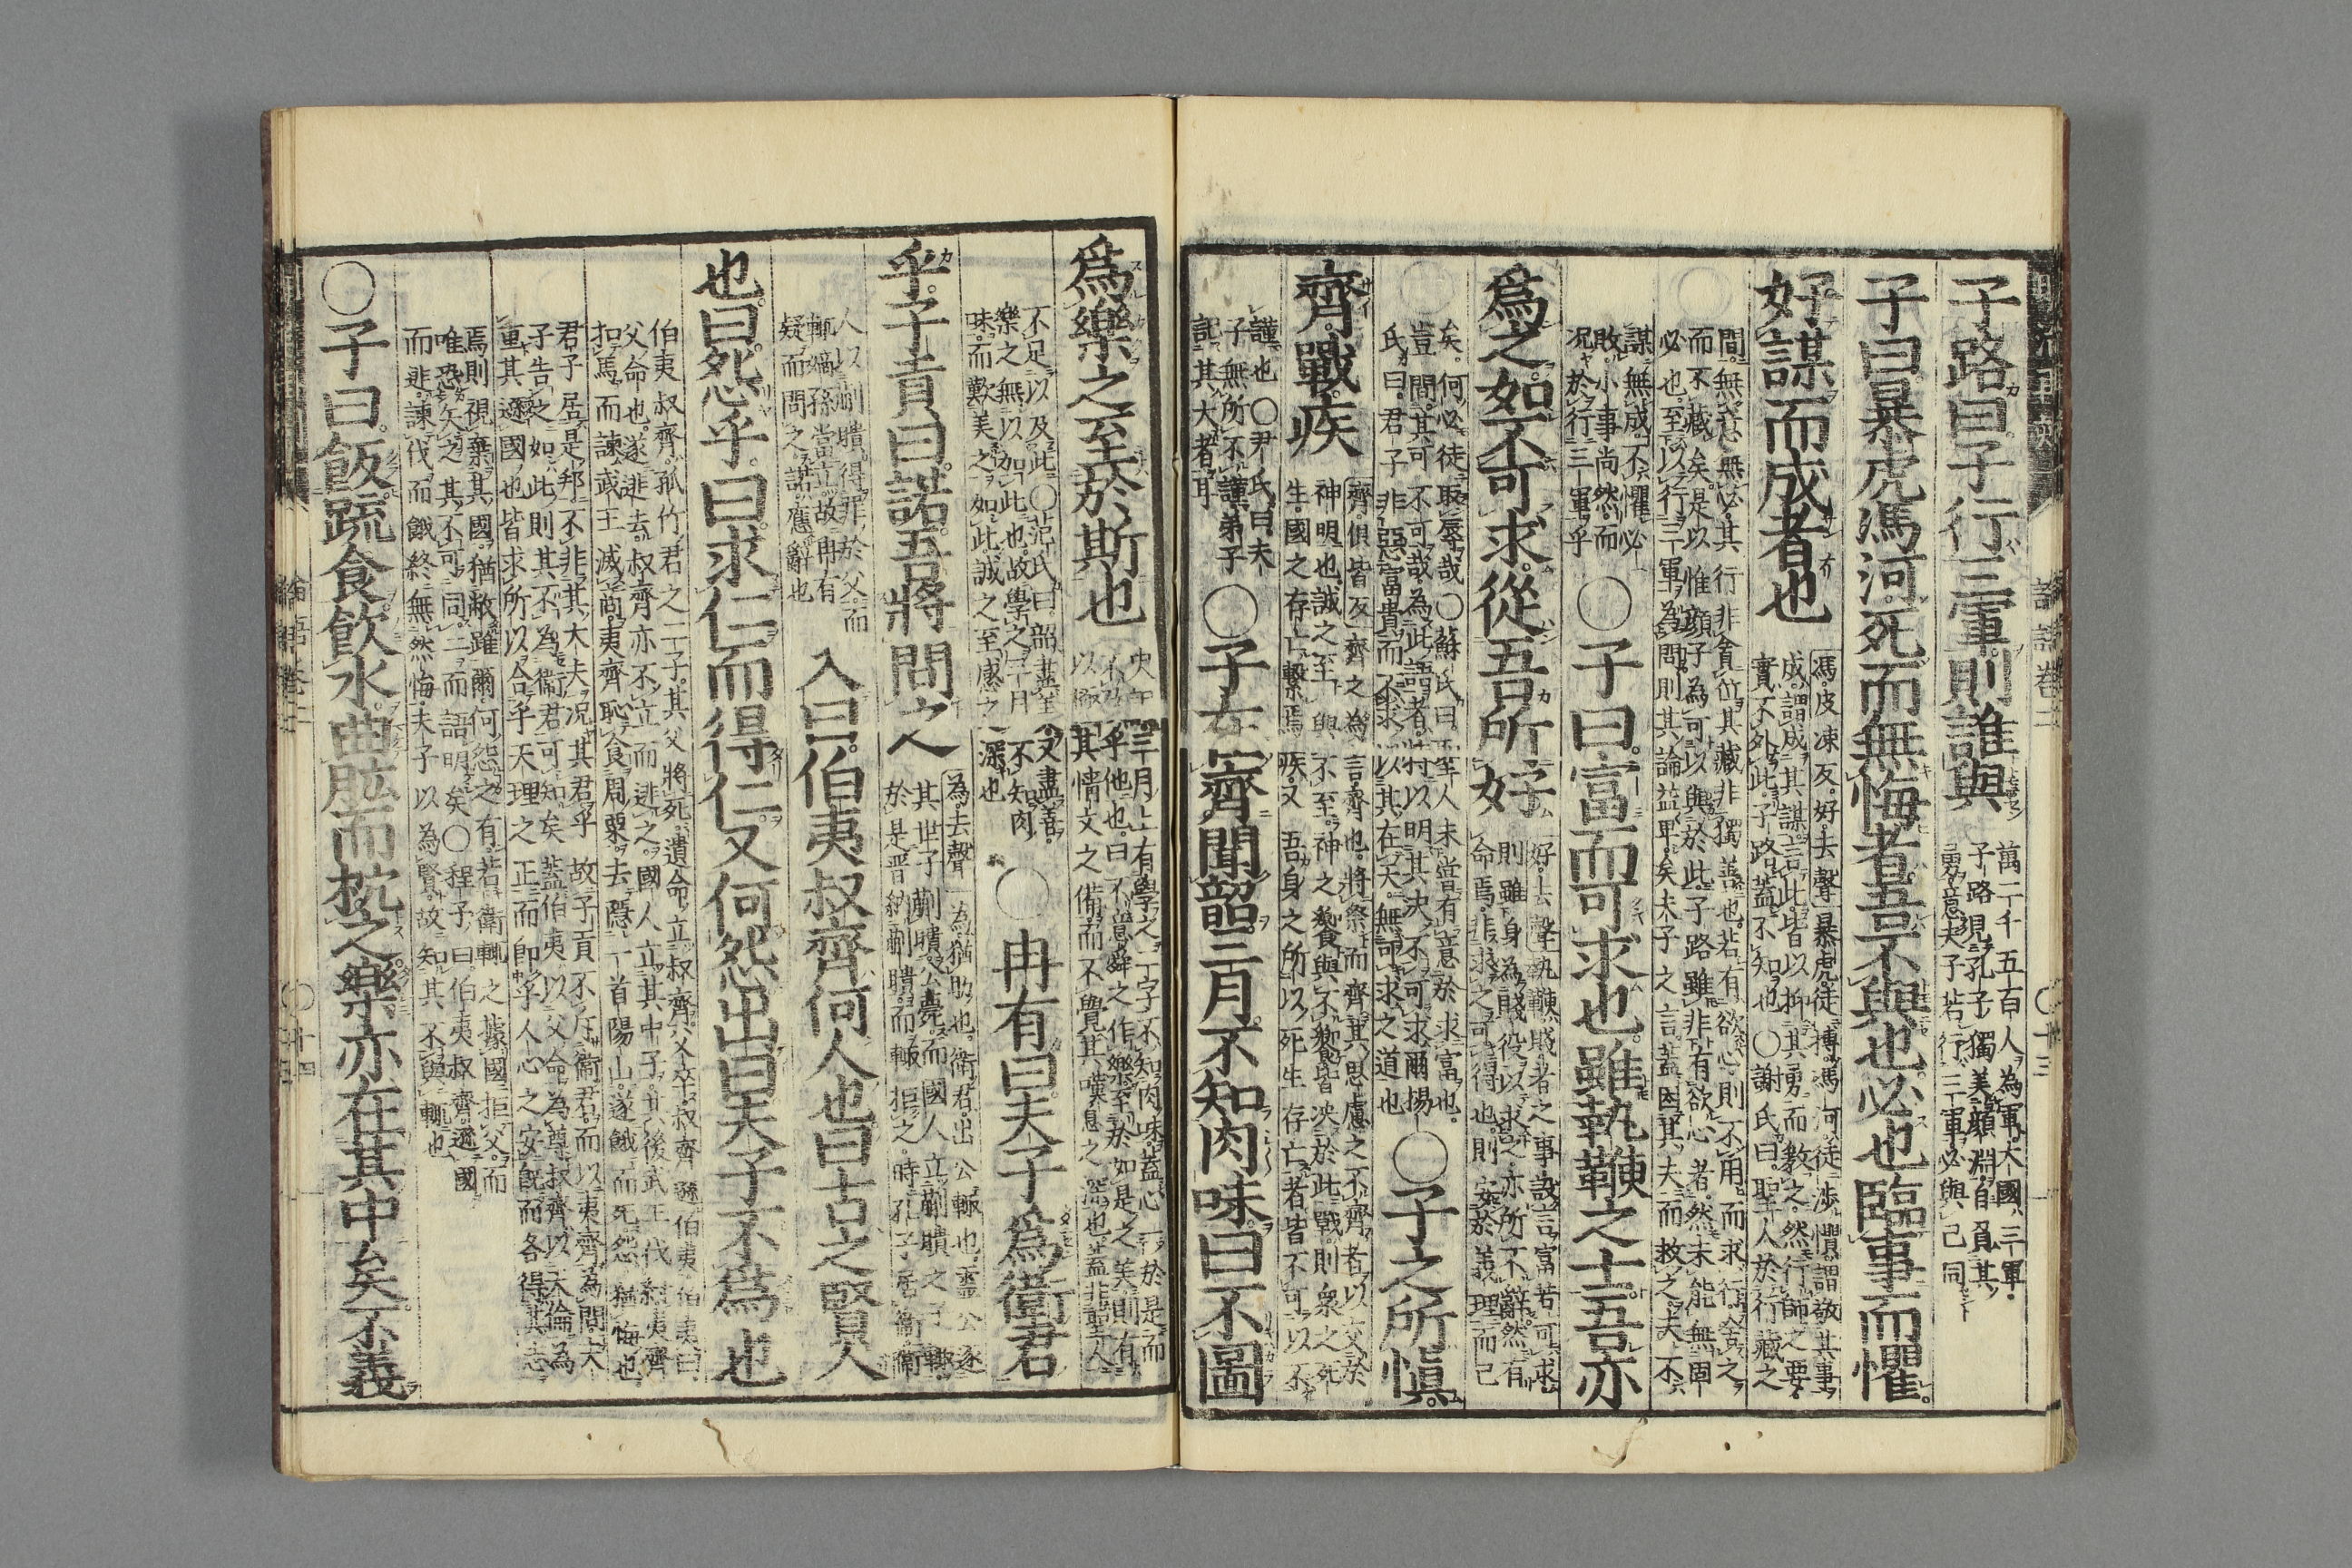 子路曰子行三軍則誰與
萬二千五百人為軍大國三軍
子路見孔子獨美顏淵自負其
勇意夫子若行三軍必與己同
子曰暴虎馮河死而無悔者吾不與也必也臨事而懼
好謀而成者也
馮皮冰反好去聲暴虎徒搏馮河徒涉懼謂敬其事
成謂成其謀言此皆以抑其勇而教之然行師之要
實不外此子路蓋不知也○謝氏曰聖人於行藏之
間無意無必其行非貪位其藏非獨善也若有欲心則不用而求行舍之
而不藏矣是以惟顏子為可以與於此子路雖非有欲心者然未能無固
必也至以行三軍為問則其論益卑矣夫子之言蓋因其失而救之夫不
謀無成不懼必
敗小事尚然而
況於行三軍乎
○子曰富而可求也雖執鞭之士吾亦
爲之如不可求從吾所好
好去聲執鞭賤者之事設言富若可求
則雖身為賤役以求之亦所不辭然有
命焉非求之可得也則安於義理而已
矣何必徒取辱哉○蘇氏曰聖人未嘗有意於求富也
豈問其可不可哉為此語者特以明其決不可求爾楊
氏曰君子非惡富貴而不求以其在天無可求之道也
○子之所愼
齊戰疾
齊側皆反齊之為言齊也將祭而齊其思慮之不齊者以交於
神明也誠之至與不至神之饗與不饗皆決於此戰則衆之死
生國之存亡繫焉疾又吾身之所以死生存亡者皆不可以不
謹也○尹氏曰夫
子無所不謹弟子
記其大者耳
○子在齊聞韶三月不知肉味曰不圖
論語卷二
○十三
爲樂之至於斯也
史記三月上有學之二字不知肉味蓋心一於是而
不及乎他也曰不意舜之作樂至於如是之美則有
以極其情文之備而不覺其嘆息之深也蓋非聖人
不足以及此○范氏曰韶盡美又盡善
樂之無以加此也故學之三月不知肉
味而歎美之如此誠之至感之深也
○冉有曰夫子爲衛君
乎子貢曰諾吾將問之
為去聲為猶助也衛君出公輒也靈公逐
其世子蒯聵公薨而國人立蒯聵之子輒
於是晉納蒯聵而輒拒之時孔子居衛衛
人以蒯聵得罪於父而
輒嫡孫當立故冉有
疑而問之諾應辭也
入曰伯夷叔齊何人也曰古之賢人
也曰怨乎曰求仁而得仁又何怨出曰夫子不爲也
伯夷叔齊孤竹君之二子其父將死遺命立叔齊父卒叔齊遜伯夷伯夷曰
父命也遂逃去叔齊亦不立而逃之國人立其中子其後武王伐紂夷齊
扣馬而諫武王滅商夷齊恥食周粟去隱于首陽山遂餓而死怨猶悔也
君子居是邦不非其大夫況其君乎故子貢不斥衛君而以夷齊為問夫
子告之如此則其不為衛君可知矣蓋伯夷以父命為尊叔齊以天倫為
重其遜國也皆求所以合乎天理之正而即乎人心之安既而各得其志
焉則視棄其國猶敝蹝爾何怨之有若衛輒之據國拒父而
唯恐失之其不可同年而語明矣○程子曰伯夷叔齊遜國
而逃諫伐而餓終無怨悔夫子以為賢故知其不與輒也
○子曰飯疏食飲水曲肱而枕之樂亦在其中矣不義
論語卷二
○十四